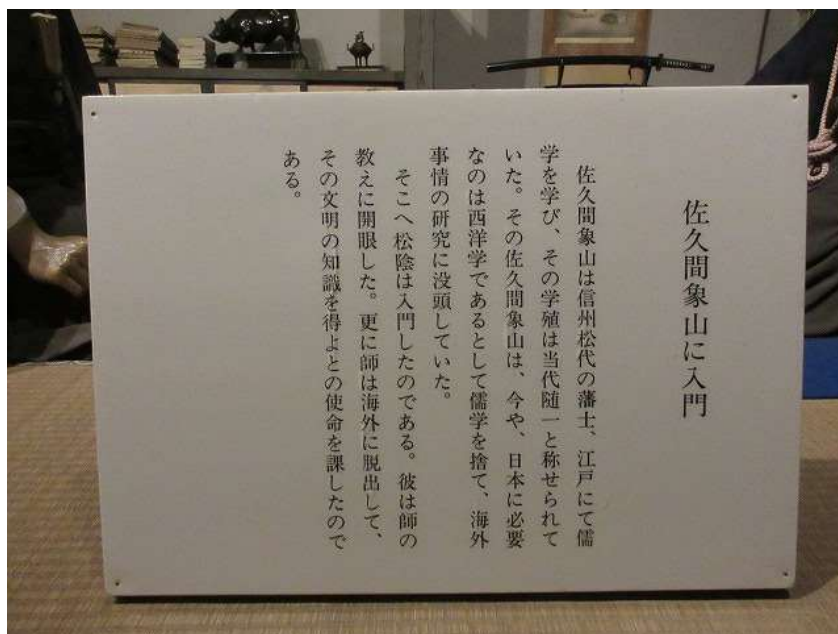 佐久間象山に入門
佐久間象山は信州松代の藩士、江戸にて儒
学を学び、その学殖は当代随一と称せられて
いた。その佐久間象山は、今や、日本に必要
なのは西洋学であるとして儒学を捨て、海外
事情の研究に没頭していた。
そこへ松陰は入門したのである。彼は師の
教えに開眼した。更に師は海外に脱出して、
その文明の知識を得よとの使命を課したので
ある。